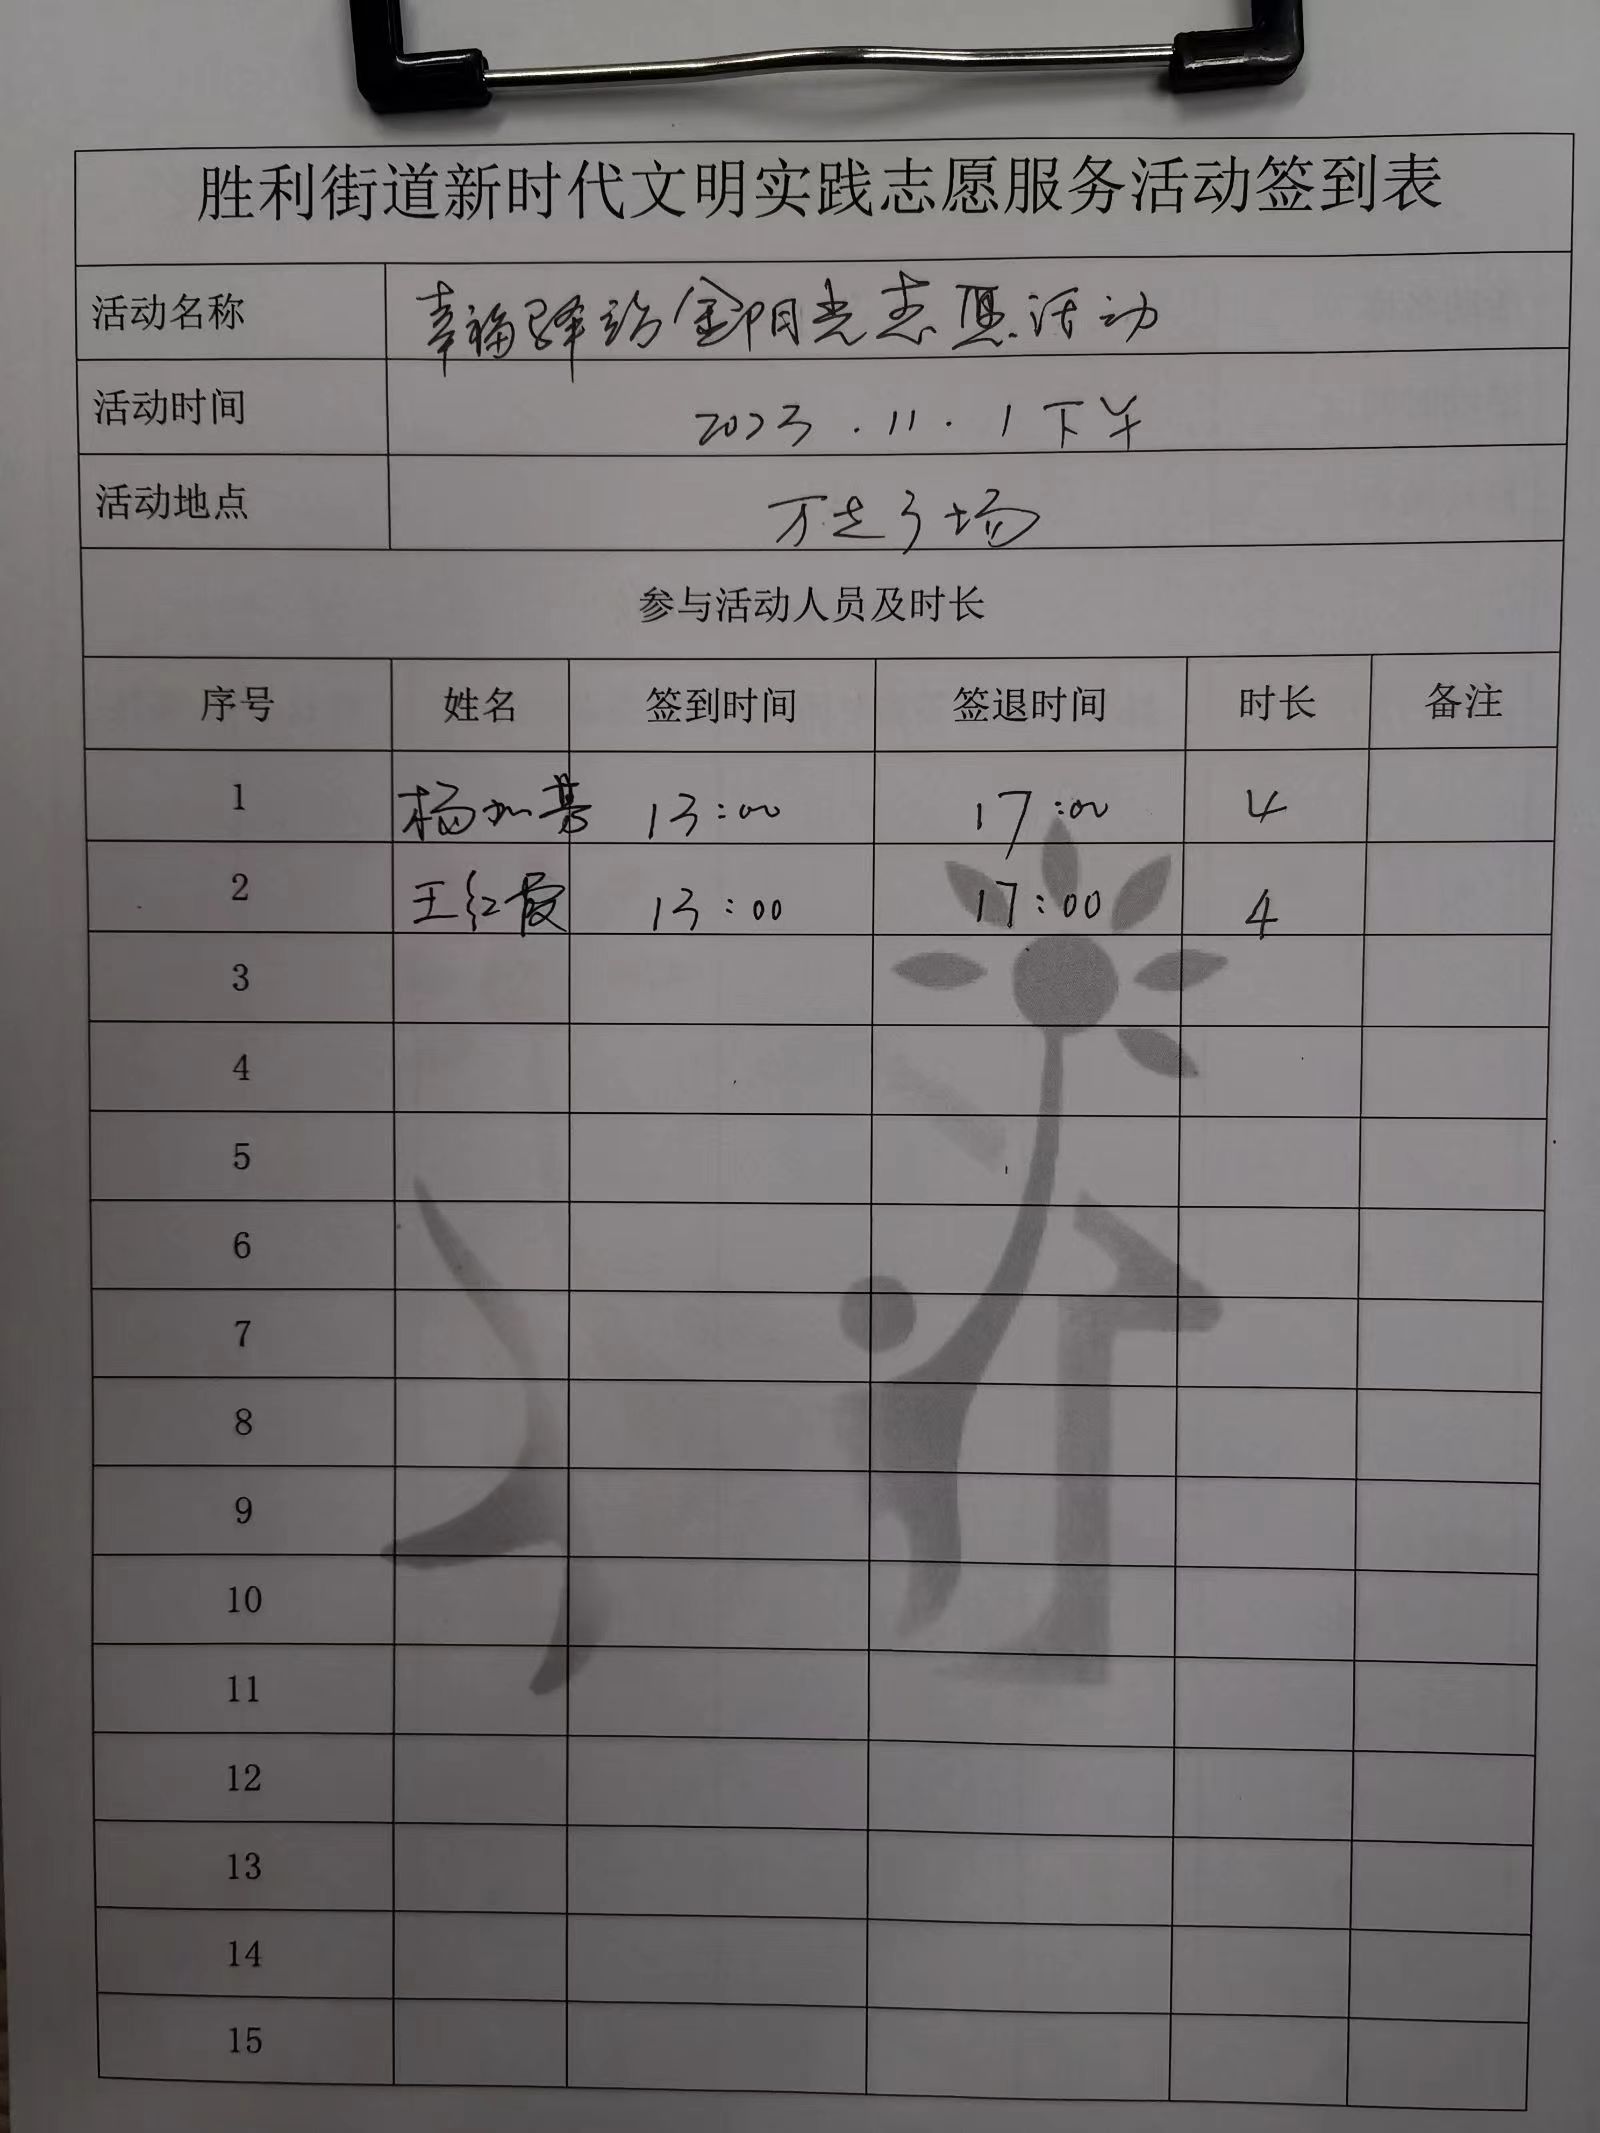 胜利街道新时代文明实践志愿服务活动签到表
活动名称 幸福驿站金阳光志愿活动
活动时间 2023.11.1下午
活动地点 万达广场
参与活动人员及时长
序号 姓名 签到时间 签退时间 时长 备注
1 杨 13:00 17:00 4
2 王红霞 13:00 17:00 4
3
4
5
6
7
8
9
10
11
12
13
14
15